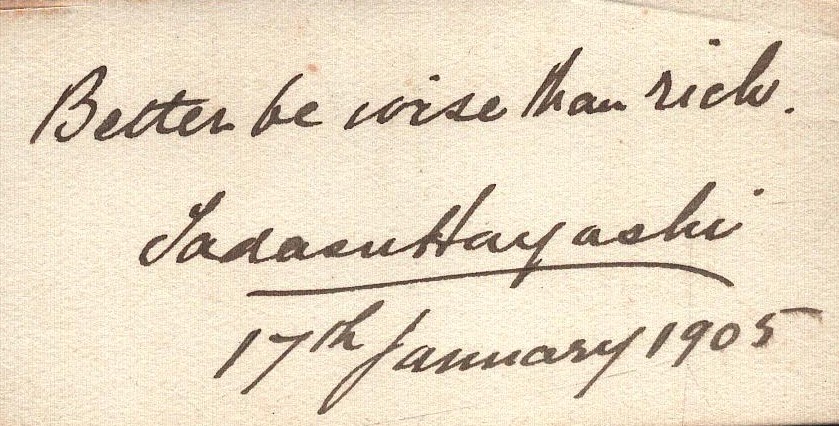 Better be wise than rich.
Tadasu Hayashi
17th January 1905